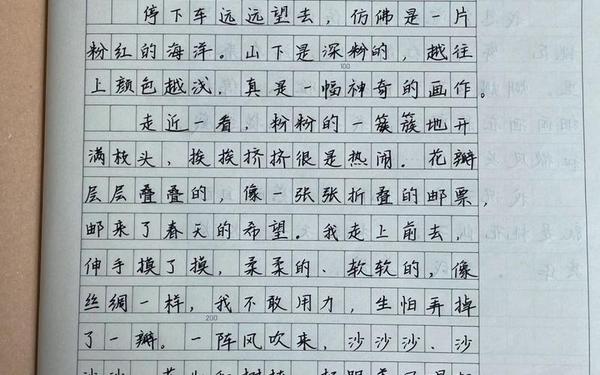 停下车远远望去，仿佛是一片
粉红的海洋。山下是深粉的，越往
100
上颜色越浅，真是一幅神奇的画作。
走近一看，粉粉的一簇簇地开
满枝头，挨挨挤挤很是热闹。花瓣
层层叠叠的，像一张张折叠的邮票，
邮来了春天的希望。我走上前去，
伸手摸了摸，柔柔的、软软的，像
丝绸一样，我不敢用力，生怕弄掉
200
了一瓣。一阵风吹来，沙沙沙、沙